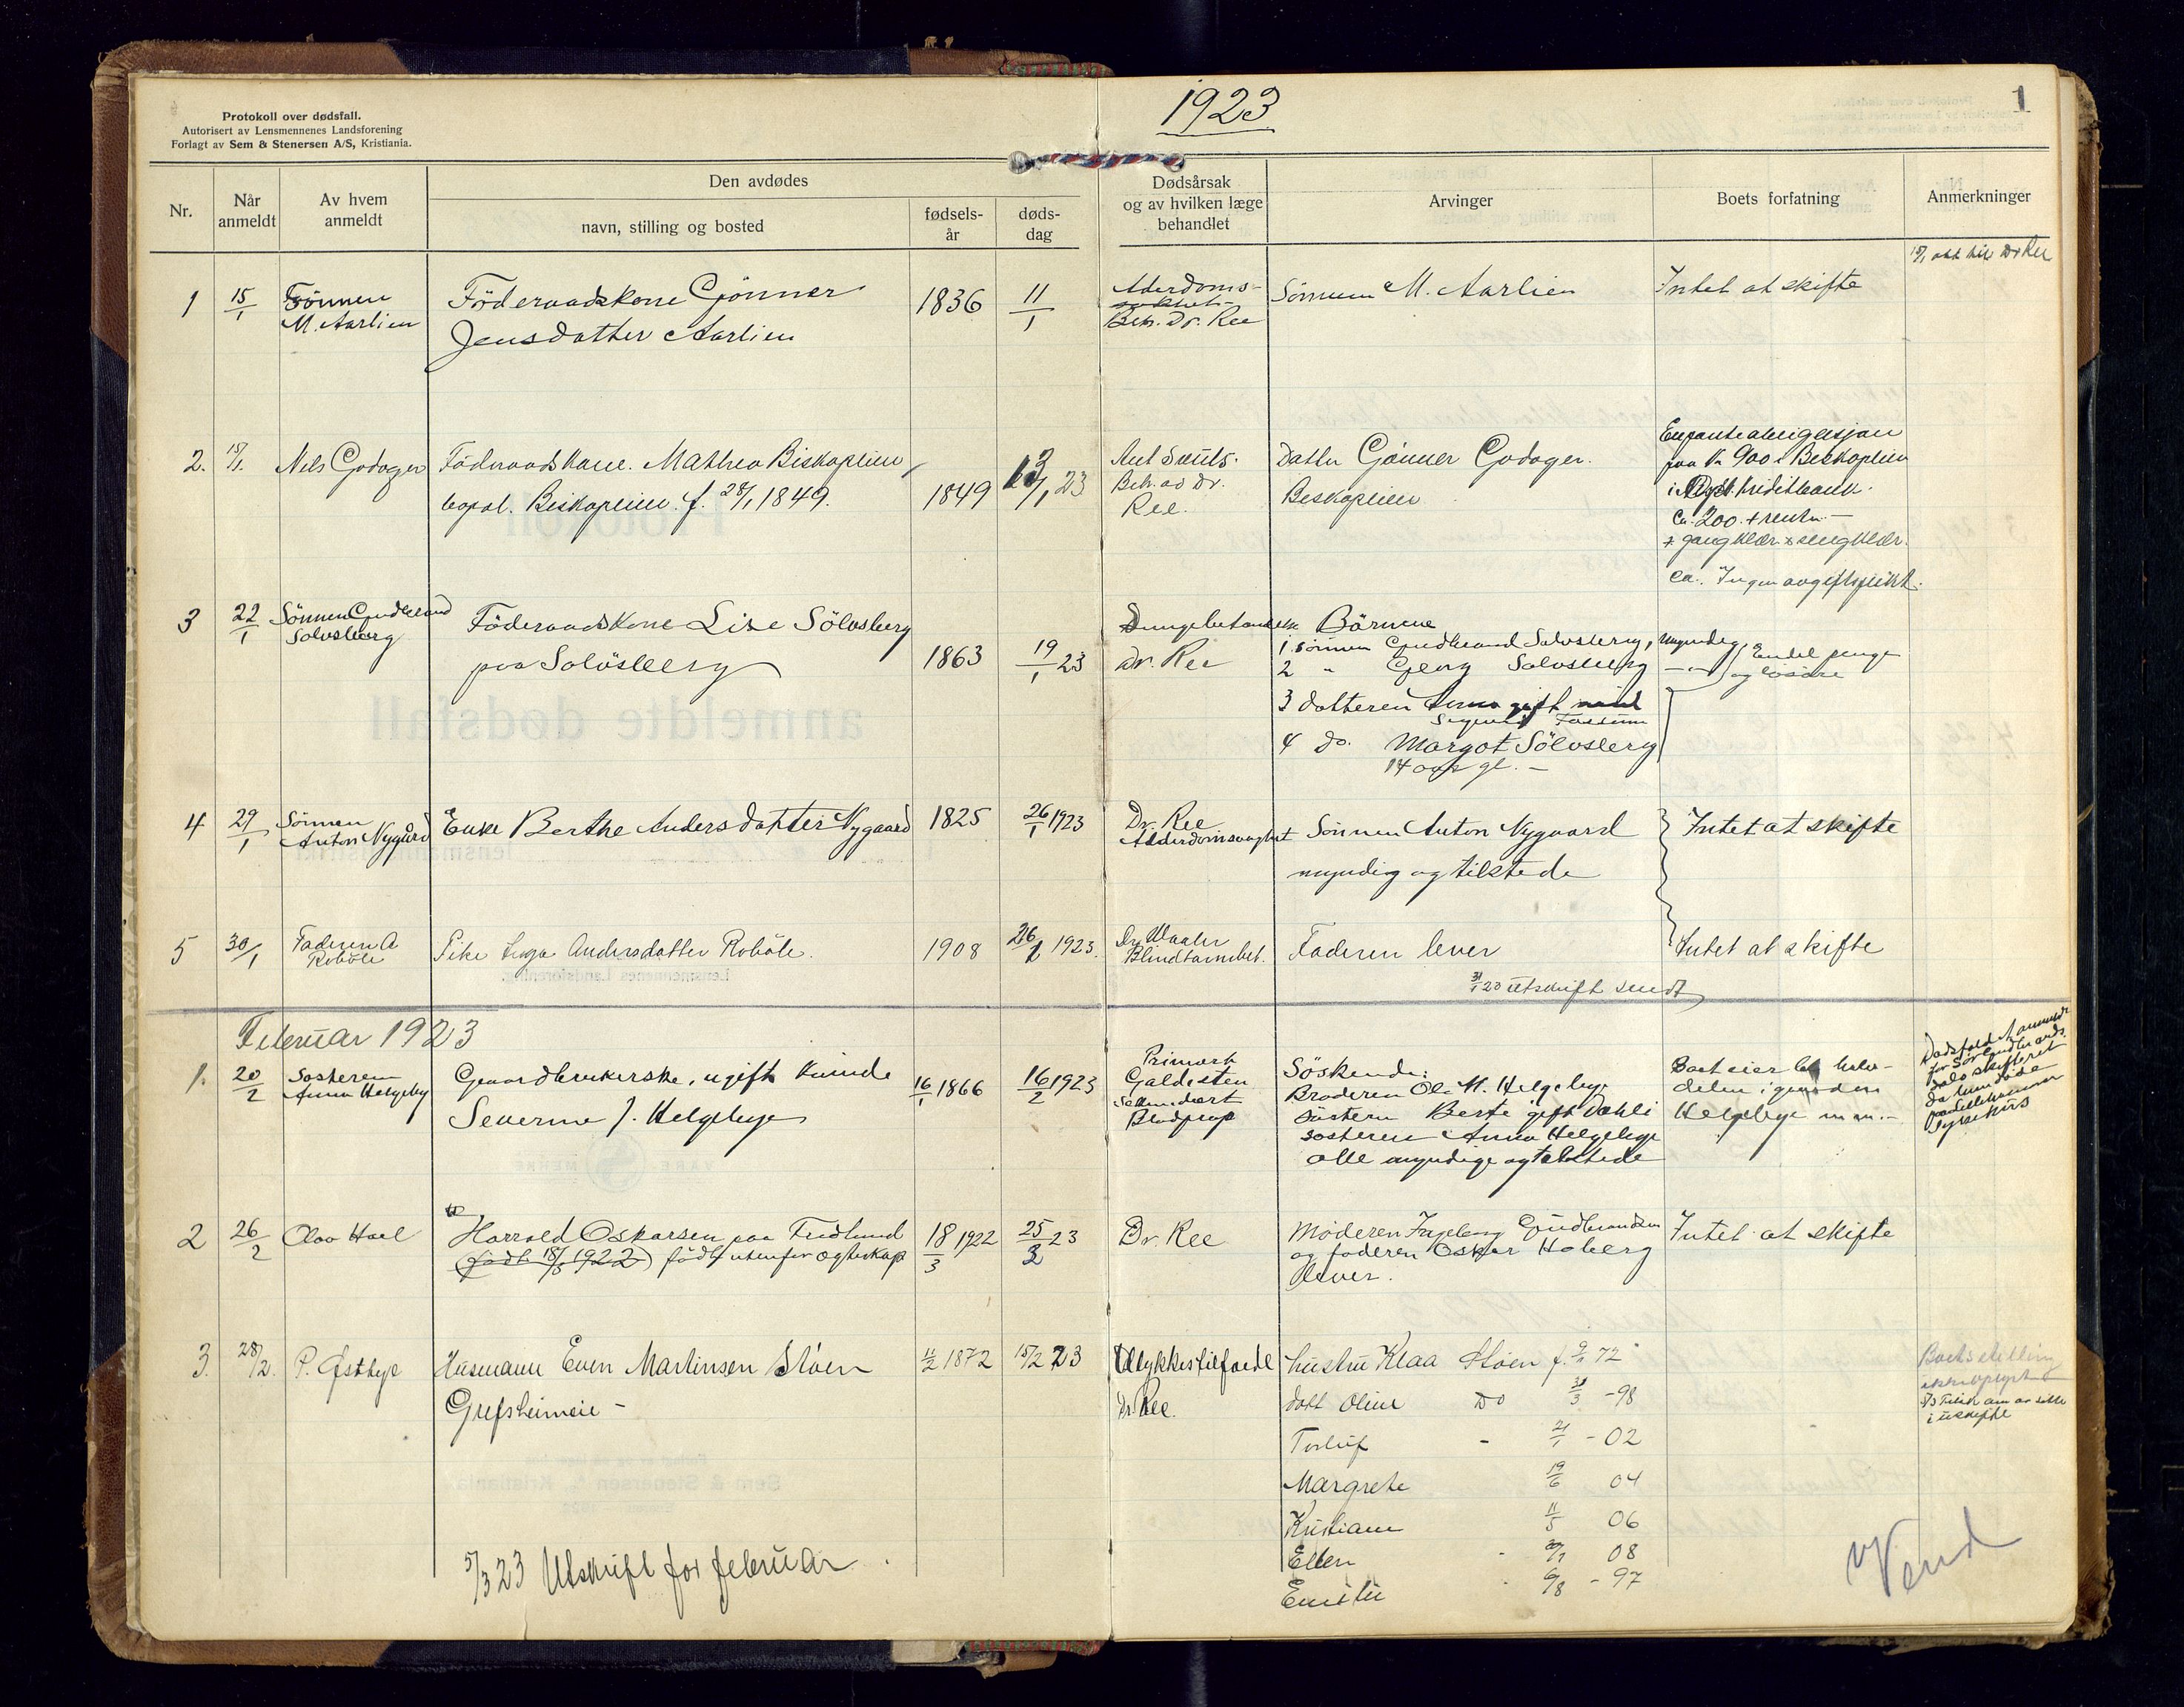 Protokoll over dødsfall.
Autorisert av Lensmennenes Landsforening
Forlagt av Sem & Stenersen A/S, Kristiania.
1923
1
Nr.
Når anmeldt
Av hvem anmeldt
Den avdødes
navn, stilling og bosted
fødsels-år
døds-dag
Dødsårsak
og av hvilken læge
behandlet
Arvinger
Boets forfatning
Anmerkninger
1
15/1
Sönnen
M. Aarlien
Föderaadskone Gjönner
Jensdatter Aarlien
1836
11/1
Alderdoms-
Beh. Dr. Ree
Sönnen M. Aarlien
Intet at skifte
15/1 att til Dr Ree
2.
15/1.
Nils Godager
Föderaadskone. Mathea Biskoplien
Biskoplien f. 28/1 1849.
1849
13/1 23
Beh. av Dr.
Ree.
Datter Gönner Godager.
Biskoplien
paa Kr 900 i Biskoplien
Ca. 200. + renter.
+ gangklær + sengklær.
ca. Ingen avgiftspligt.
3
22/1
Sönnen Gudbrand
Solvsberg
Föderaadskone Lise Sölvsberg
paa Solvsberg
1863
19/1 23
Lungebetændelse
Dr. Ree
Börnene
1 sönnen Gudbrand Solvsberg, myndig,
2 " Georg Solvsberg - " -
Endel penge
og lösöre
3 datteren Anna gift med
Sigurd Fossum
4 do. Margot Sölvsberg
14 aar gl. -
4
29/1
Sönnen
Anton Nygård
Enke Berthe Andersdatter Nygaard
1825
26/1 1923
Dr. Ree
Alderdomsvaghet
Sönnen Anton Nygaard
myndig og tilstede
Intet at skifte
5
30/1
Faderen A
Roböle
Pike Inga Andersdatter Roböle.
1908
26/1 1923.
Dr. Waaler
Blindtarmbet.
Faderen lever
Intet at skifte
31/1 23 Utskrift sendt
Februar 1923
1.
20/2
Sosteren
Anna Helgeby
Gaardbrukerske, ugift kvinde
Severine J. Helgebye
16/1 1866
16/2 1923
Primært
Galdesten
Sekundært
Blodprop
Söskende:
Broderen Ole M. Helgebye
söstern Berte gift Dahli
sosteren Anna Helgebye
alle myndige og tilstede
Boet eier halv-
delen i gaarden
Helgebye m.m.-
Dödsfaldet anmeldt
for Sör Gudbrands-
dals skifteret
da hun döde
paa Lillehammer
sykehus
2
26/2
Olav Hoel
Harrald Oskarsen paa Fredlund
(født 18/3 1922) född utenfor ægteskap
18/3 1922
25/2 23
Dr. Ree
Moderen Ingeborg Gudbrandsen
og faderen Oskar Hoberg
lever.
Intet at skifte
3.
28/2.
P. Østbye
Husmann Even Martinsen Stöen
Grefsheimeie -
11/2 1872
15/2 23
Ulykkestilfælde
Dr Ree.
hustru Klaa Stöen f. 9/1 72
datt Oline Do 31/3 -98
Torleif - 21/1 - 02
Margrete 19/6 04
Kristiane 11/5 06
Ellen 08
Emilie 6/8 - 97
i uskifte
5/3 23 Utskrift for februar.
Vend